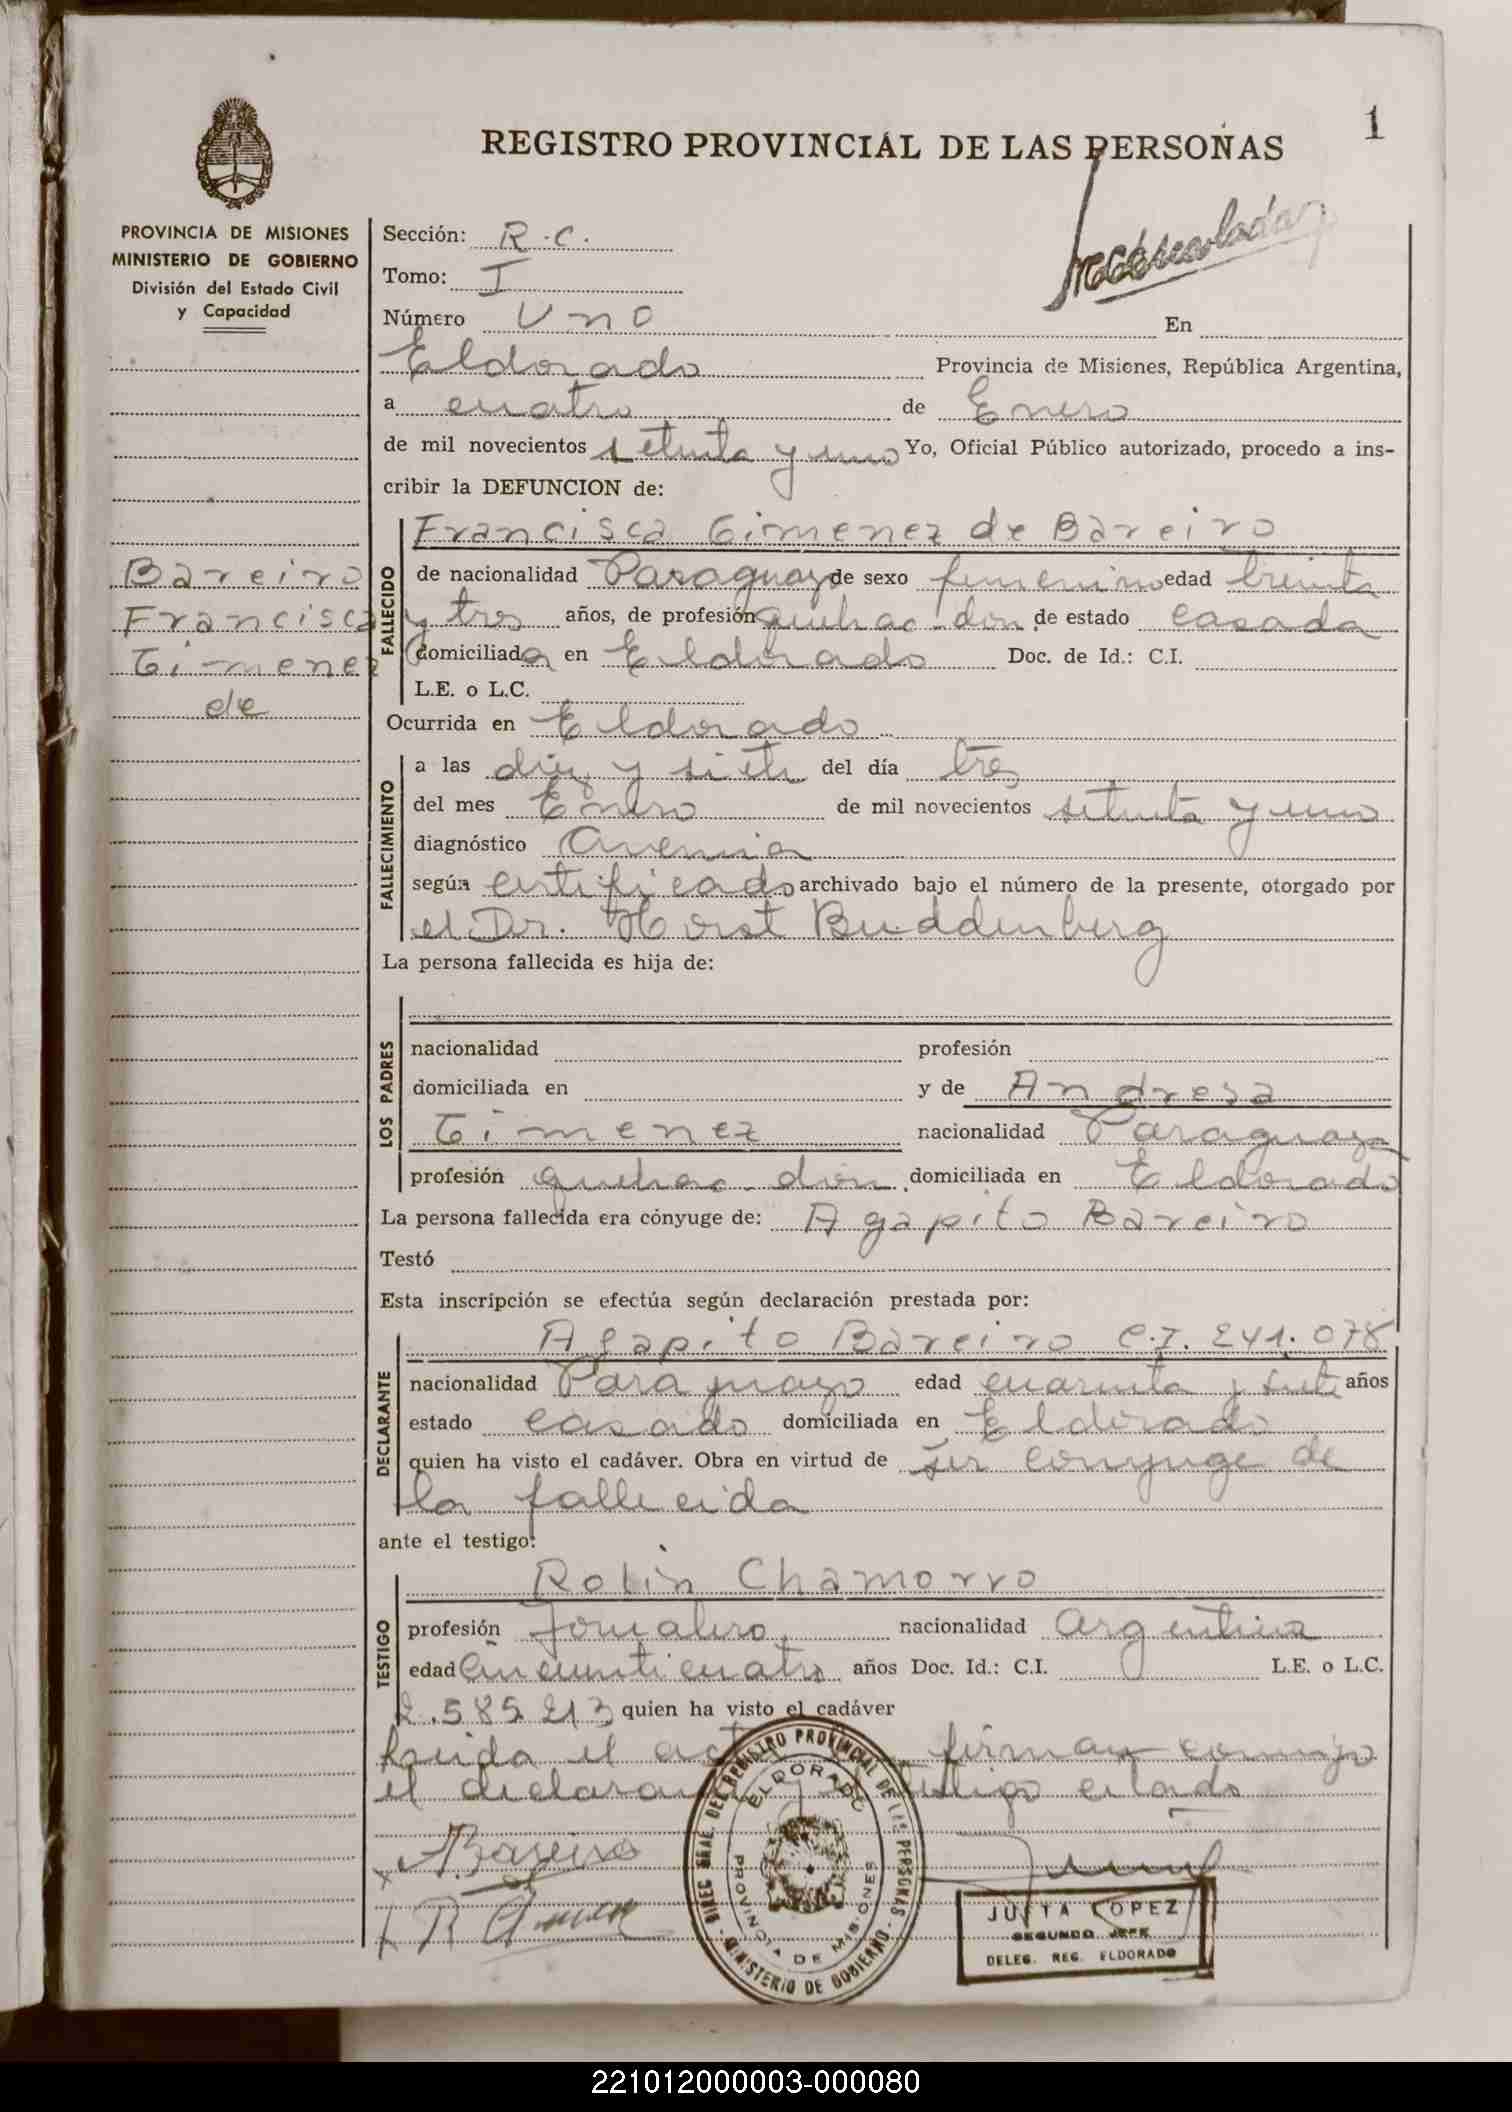 1
REGISTRO PROVINCIAL DE LAS PERSONAS
PROVINCIA DE MISIONES
MINISTERIO DE GOBIERNO
División del Estado Civil
y Capacidad
Sección: R.C.
Tomo: I
Número Uno En
Eldorado Provincia de Misiones, República Argentina,
a cuatro de Enero
de mil novecientos setenta y uno Yo, Oficial Público autorizado, procedo a ins-
cribir la DEFUNCION de:
Bareiro
Francisca
Gimenez
de
FALLECIDO
Francisca Gimenez de Bareiro
de nacionalidad Paraguaya de sexo femenino edad treinta
y tres años, de profesión quehac. dom. de estado casada
domiciliada en Eldorado Doc. de Id.: C.I.
L.E. o L.C.
Ocurrida en Eldorado
FALLECIMIENTO
a las diez y siete del día tres
del mes Enero de mil novecientos setenta y uno
diagnóstico Anemia
según certificado archivado bajo el número de la presente, otorgado por
el Dr. Horst Buddenberg
La persona fallecida es hija de:
LOS PADRES
nacionalidad profesión
domiciliada en y de Andresa
Gimenez nacionalidad Paraguaya
profesión quehac. dom. domiciliada en Eldorado
La persona fallecida era cónyuge de: Agapito Bareiro
Testó
Esta inscripción se efectúa según declaración prestada por:
DECLARANTE
Agapito Bareiro C.I. 241.078
nacionalidad Paraguayo edad cuarenta y siete años
estado casado domiciliada en Eldorado
quien ha visto el cadáver. Obra en virtud de ser conyuge de
la fallecida
ante el testigo:
TESTIGO
Rolin Chamorro
profesión Jornalero nacionalidad Argentina
edad cincuenticuatro años Doc. Id.: C.I. L.E. o L.C.
2.585.213 quien ha visto el cadáver
Leida el acta firman conmigo
el declarante y testigo citado
A. Bareiro
R
DIREC GRAL. DEL REGISTRO PROVINCIAL DE LAS PERSONAS - MINISTERIO DE GOBIERNO -
ELDORADO
PROVINCIA DE MISIONES
JUSTA LOPEZ
SEGUNDO JEFE
DELEG. REG. ELDORADO
221012000003-000080